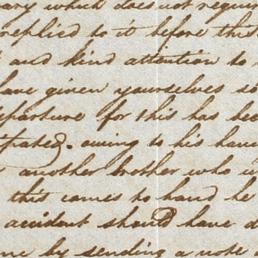 ary which does not requi
replied to it before this
and kind attention to
have given yourselves so
departure for this has bee
owing to his have
another brother who i
this comes to hand he
accident should have d
me by sending a note